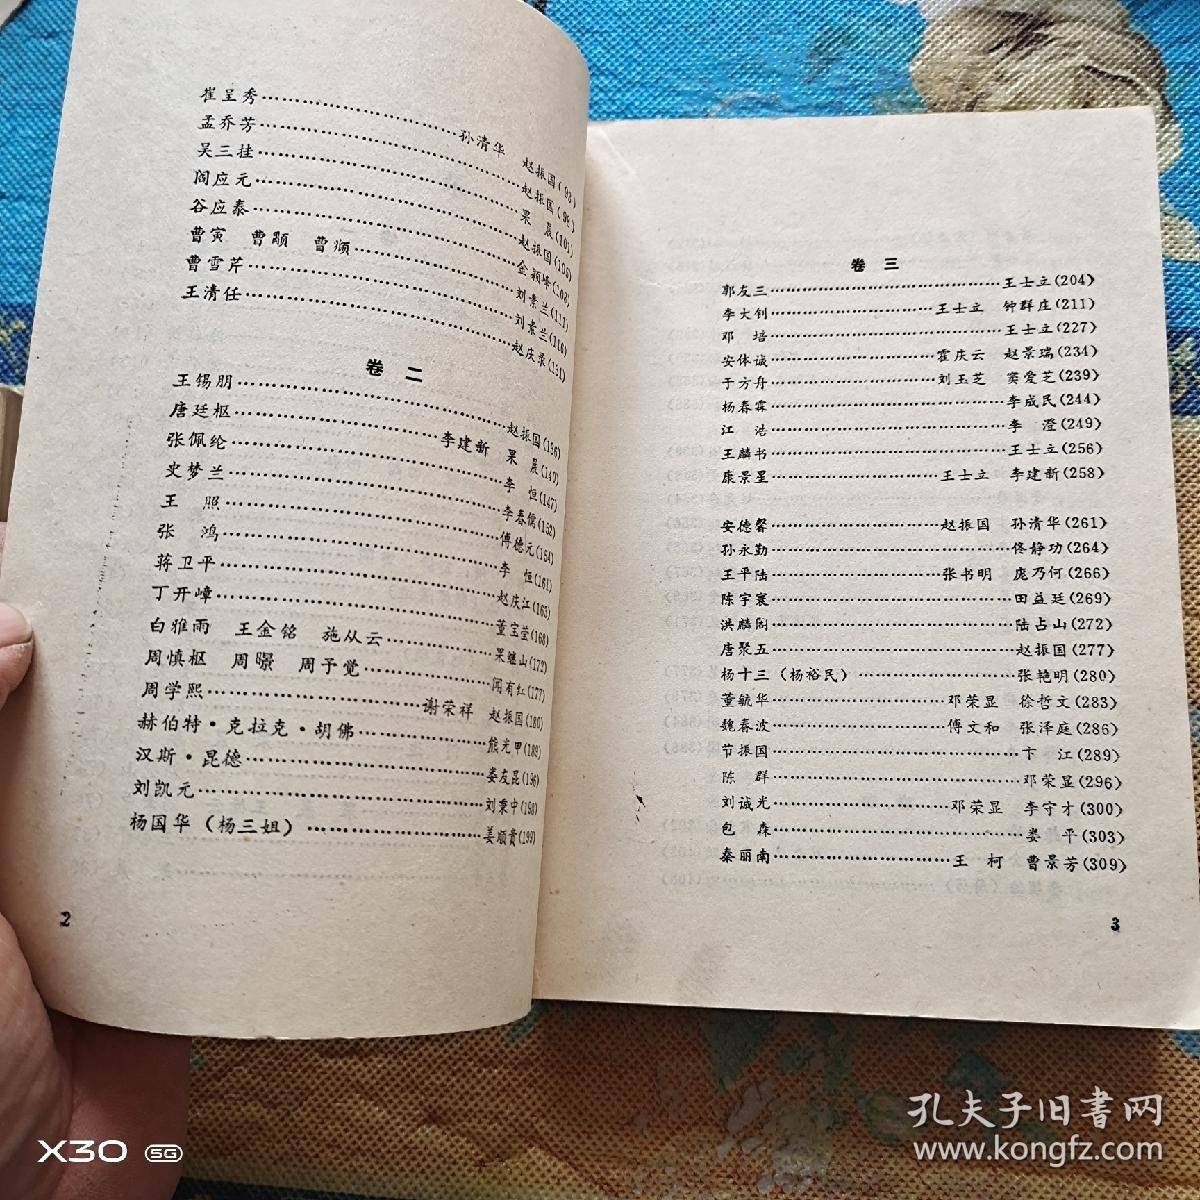 崔呈秀……孙清华 赵振国(93)
孟乔芳……赵振国(98)
吴三挂……果 晨(101)
阎应元……赵振国(106)
谷应泰……金颖峰(108)
曹寅 曹颙 曹頫……刘素兰(111)
曹雪芹……刘素兰(116)
王清任……赵庆录(131)
卷 二
王锡朋……赵振国(136)
唐廷枢……李建新 果 晨(140)
张佩纶……李 恒(147)
史梦兰……李春儒(152)
王 照……傅德元(154)
张 鸿……李 恒(161)
蒋卫平……赵庆江(165)
丁开嶂……董宝莹(168)
白雅雨 王金铭 施从云……果继山(172)
周慎枢 周暻 周予觉……闻有红(177)
周学熙……谢荣祥 赵振国(180)
赫伯特·克拉克·胡佛……熊光甲(189)
汉斯·昆德……娄友昆(196)
刘凯元……刘秉中(198)
杨国华(杨三姐)……姜顺贵(199)
2
卷 三
郭友三……王士立(204)
李大钊……王士立 钟群庄(211)
邓 培……王士立(227)
安体诚……霍庆云 赵景瑞(234)
于方舟……刘玉芝 窦爱芝(239)
杨春霖……李成民(244)
江 浩……李 澄(249)
王麟书……王士立(256)
康景星……王士立 李建新(258)
安德馨……赵振国 孙清华(261)
孙永勤……佟静功(264)
王平陆……张书明 庞乃何(266)
陈宇寰……田益廷(269)
洪麟阁……陆占山(272)
唐聚五……赵振国(277)
杨十三(杨裕民)……张艳明(280)
董毓华……邓荣显 徐哲文(283)
魏春波……傅文和 张泽庭(286)
节振国……卞 江(289)
陈 群……邓荣显(296)
刘诚光……邓荣显 李守才(300)
包 森……娄 平(303)
秦丽南……王 柯 曹景芳(309)
3
孔夫子旧書网
www.kongfz.com
X30 5G